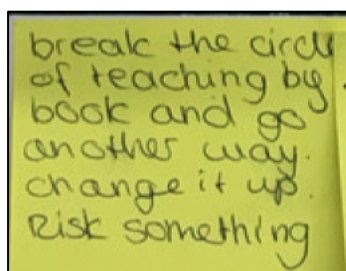 break the circle
of teaching by
book and go
another way.
change it up.
Risk something